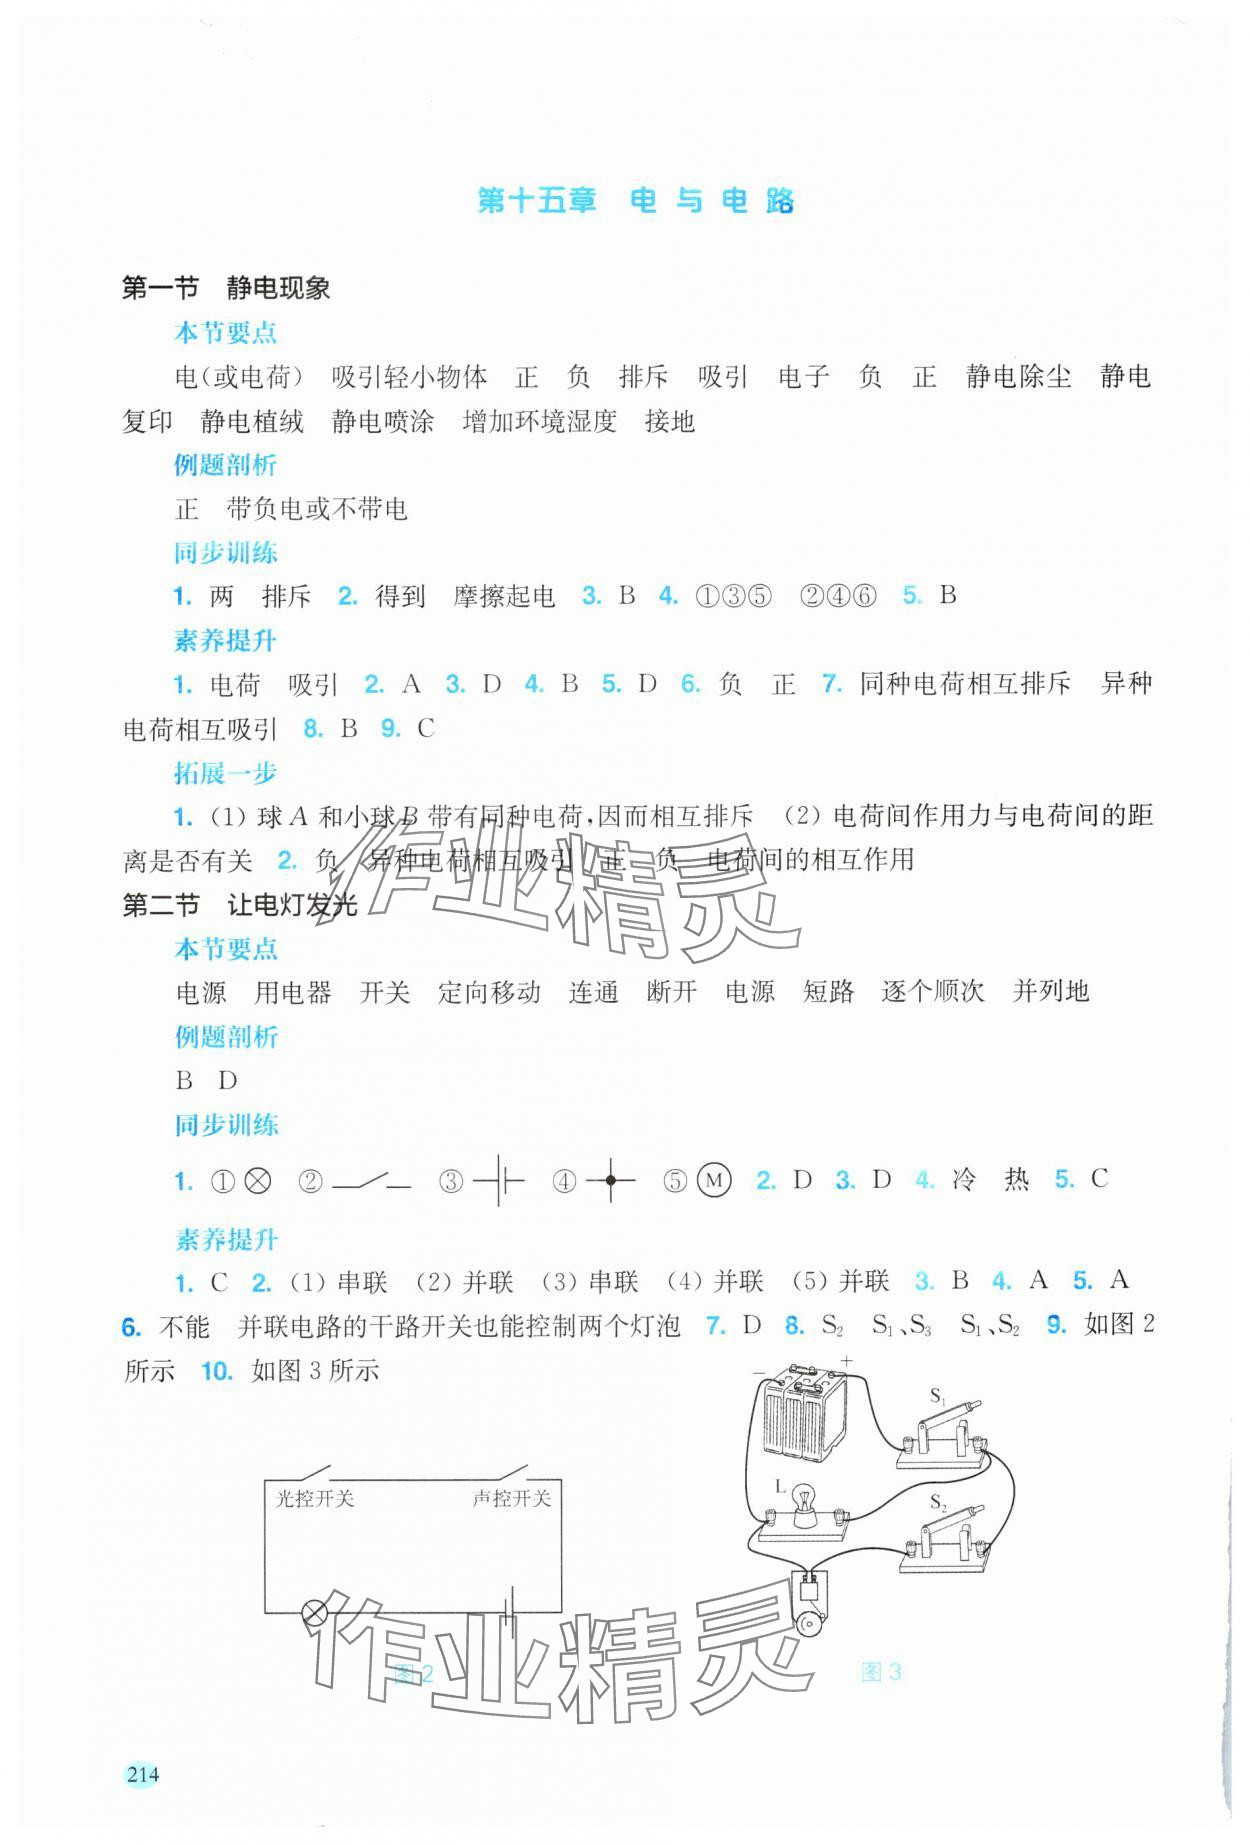 第十五章 电与电路
第一节 静电现象
本节要点
电(或电荷) 吸引轻小物体 正 负 排斥 吸引 电子 负 正 静电除尘 静电
复印 静电植绒 静电喷涂 增加环境湿度 接地
例题剖析
正 带负电或不带电
同步训练
1. 两 排斥 2. 得到 摩擦起电 3. B 4. ①③⑤ ②④⑥ 5. B
素养提升
1. 电荷 吸引 2. A 3. D 4. B 5. D 6. 负 正 7. 同种电荷相互排斥 异种
电荷相互吸引 8. B 9. C
拓展一步
1. (1) 球 A 和小球 B 带有同种电荷,因而相互排斥 (2) 电荷间作用力与电荷间的距
离是否有关 2. 负 异种电荷相互吸引 正 负 电荷间的相互作用
第二节 让电灯发光
本节要点
电源 用电器 开关 定向移动 连通 断开 电源 短路 逐个顺次 并列地
例题剖析
B D
同步训练
1. ① ② ③ ④ ⑤ M 2. D 3. D 4. 冷 热 5. C
素养提升
1. C 2. (1) 串联 (2) 并联 (3) 串联 (4) 并联 (5) 并联 3. B 4. A 5. A
6. 不能 并联电路的干路开关也能控制两个灯泡 7. D 8. S₂ S₁、S₃ S₁、S₂ 9. 如图 2
所示 10. 如图 3 所示
− +
S₁
光控开关 声控开关
L
S₂
图 2
图 3
作业精灵
作业精灵
214